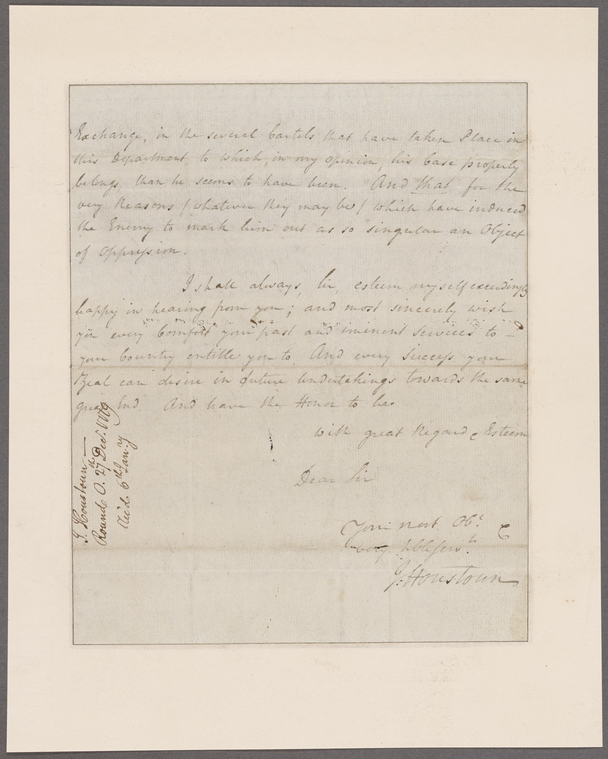 Exchange, in the several Cartels that have taken Place in
this Department to which, in my opinion his Case properly
belongs, than he seems to have been. And that, for the
very Reasons (whatever they may be) which have induced
the Enemy to mark him out as so singular an Object
of Oppression.
I shall always, Sir, esteem myself exceedingly
happy in hearing from you; and most sincerely wish
you every Comfort your past and iminent Services to
your Country entitle you to. And every Success your
Zeal can desire in future Undertakings towards the same
great End. And have the Honor to be.
With great Regard & Esteem
Dear Sir
Your most Obt. &
very Servt.
J. Houstoun
J. Houstoun
Round O. 27th Decr. 1779
Recd. 6th Jany